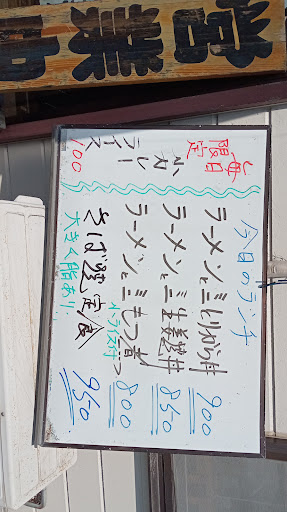 営業中
毎日
限定
小カレー
ライス
100
今日のランチ
ラーメンとミニとりから丼 900
ラーメンとミニ生姜焼丼 850
ラーメンとミニもつ煮 800
小ライス付
さば塩定食 950
大きく脂あり